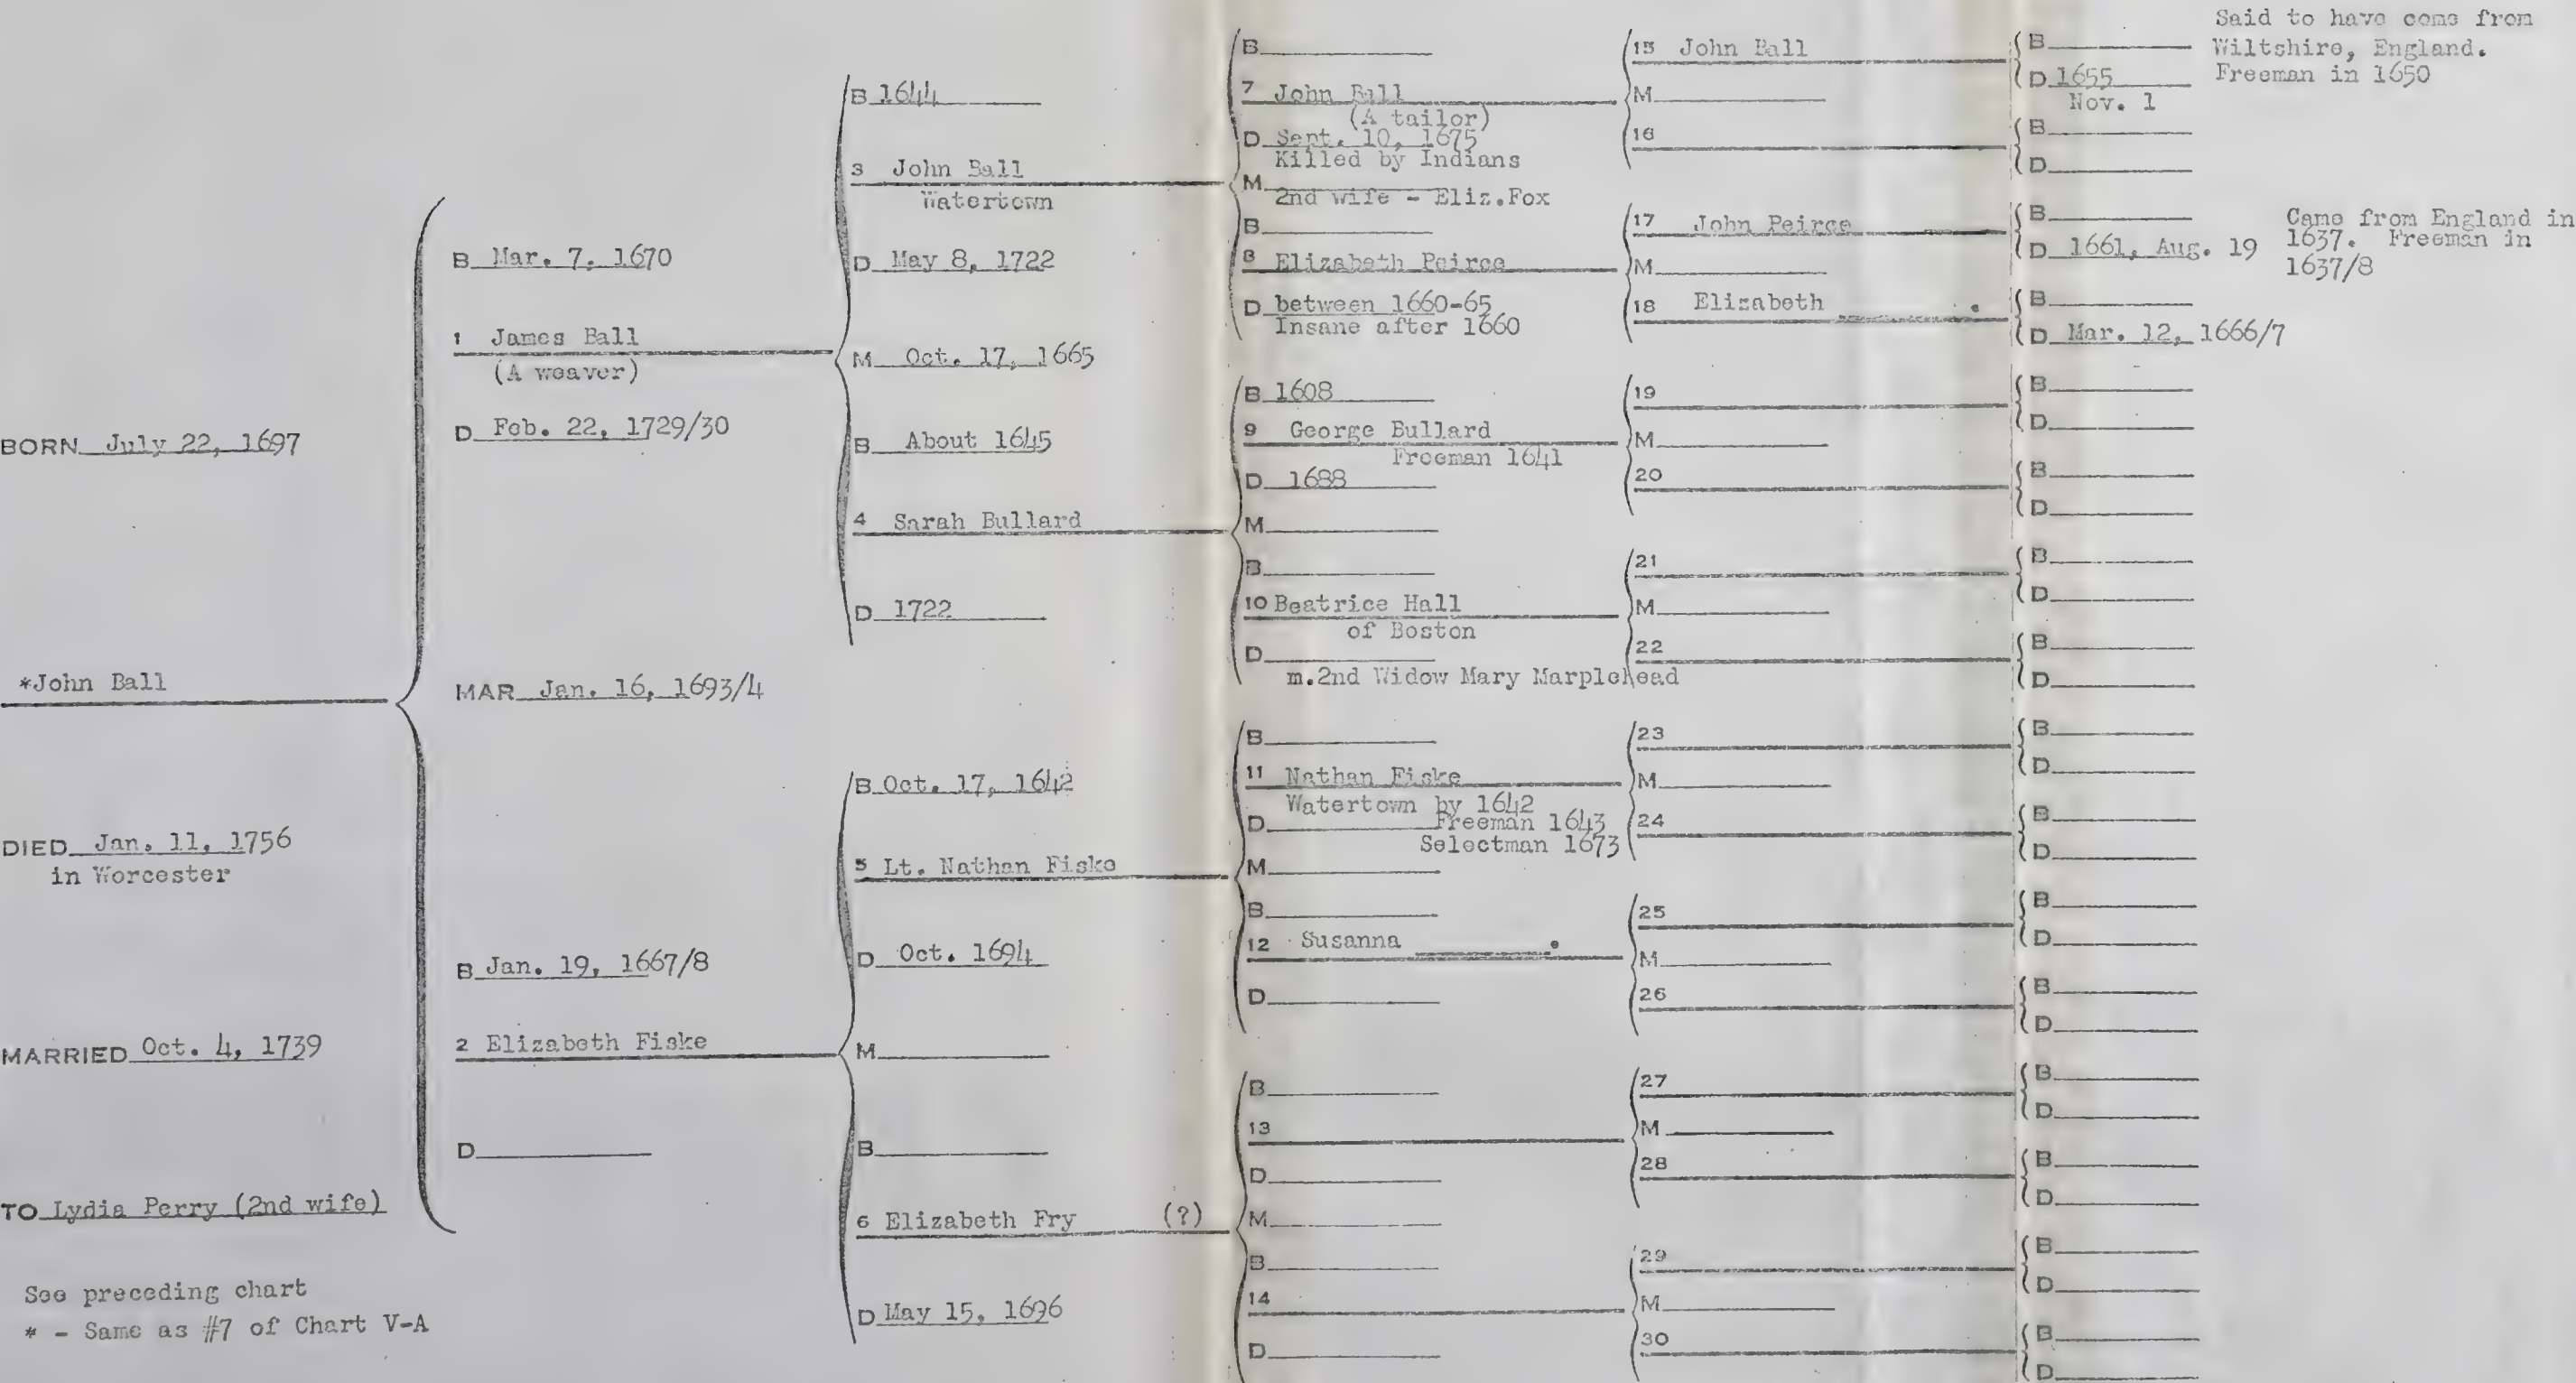 BORN July 22, 1697
*John Ball
DIED Jan. 11, 1756
in Worcester
MARRIED Oct. 4, 1739
TO Lydia Perry (2nd wife)
See preceding chart
* - Same as #7 of Chart V-A
B Mar. 7, 1670
1 James Ball
(A weaver)
D Feb. 22, 1729/30
MAR Jan. 16, 1693/4
B Jan. 19, 1667/8
2 Elizabeth Fiske
D
B 1644
3 John Ball
Watertown
D May 8, 1722
M Oct. 17, 1665
B About 1645
4 Sarah Bullard
D 1722
B Oct. 17, 1642
5 Lt. Nathan Fiske
D Oct. 1694
M
B
6 Elizabeth Fry (?)
D May 15, 1696
B
7 John Ball
(A tailor)
D Sept. 10, 1675
Killed by Indians
M
2nd wife - Eliz.Fox
B
8 Elizabeth Peirce
D between 1660-65
Insane after 1660
B 1608
9 George Bullard
Freeman 1641
D 1688
M
B
10 Beatrice Hall
of Boston
D
m.2nd Widow Mary Marplehead
B
11 Nathan Fiske
Watertown by 1642
D Freeman 1643
Selectman 1673
M
B
12 Susanna .
D
B
13
D
M
B
14
D
15 John Ball
M
16
17 John Peirce
M
18 Elizabeth .
19
M
20
21
M
22
23
M
24
25
M
26
27
M
28
29
M
30
B
D 1655
Nov. 1
Said to have come from
Wiltshire, England.
Freeman in 1650
B
D
B
D 1661, Aug. 19
Came from England in
1637. Freeman in
1637/8
B
D Mar. 12, 1666/7
B
D
B
D
B
D
B
D
B
D
B
D
B
D
B
D
B
D
B
D
B
D
B
D